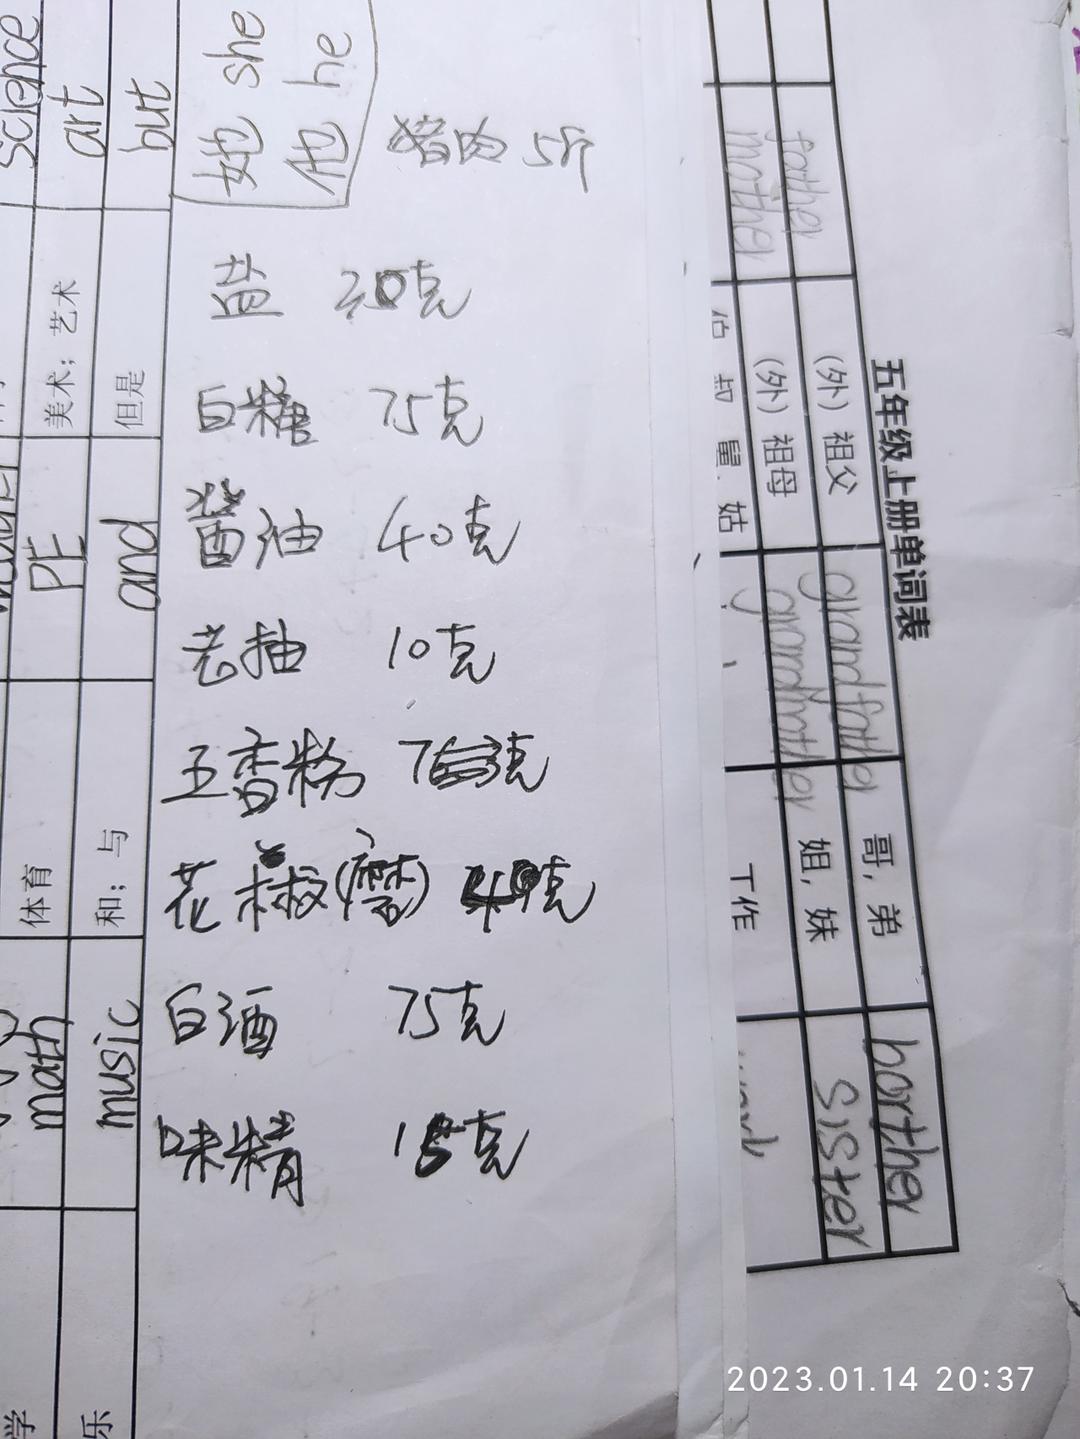 science
art
but
她 she
他 he
猪肉 5斤
盐 30克
白糖 75克
酱油 40克
老抽 10克
五香粉 克
花椒(磨) 克
白酒 75克
味精 克
美术；艺术
但是
PE
and
体育
和；与
math
music
学
乐
五年级上册单词表
father
(外) 祖父
grandfather
哥，弟
borther
mother
(外) 祖母
grandmother
姐，妹
sister
伯 叔 舅 姑
工作
2023.01.14 20:37